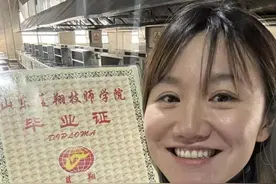 山东蓝翔技师学院
毕业证
DIPLOMA